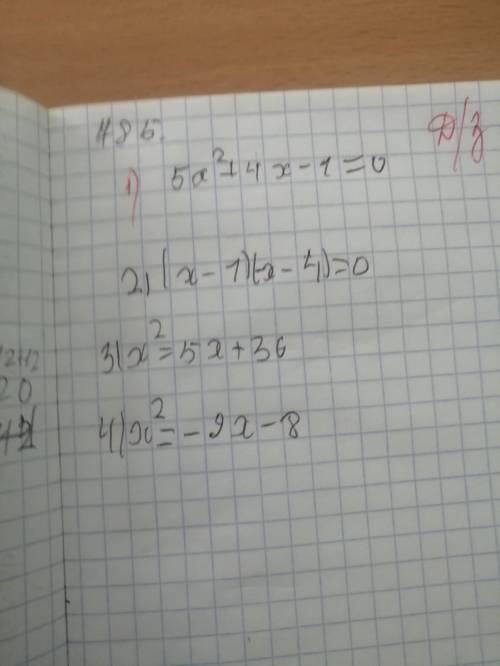 №85.
Д/з
1) 5x²+4x-1=0
2) (x-1)(-x-4)=0
3) x²=5x+36
4) x²=-9x-8
20